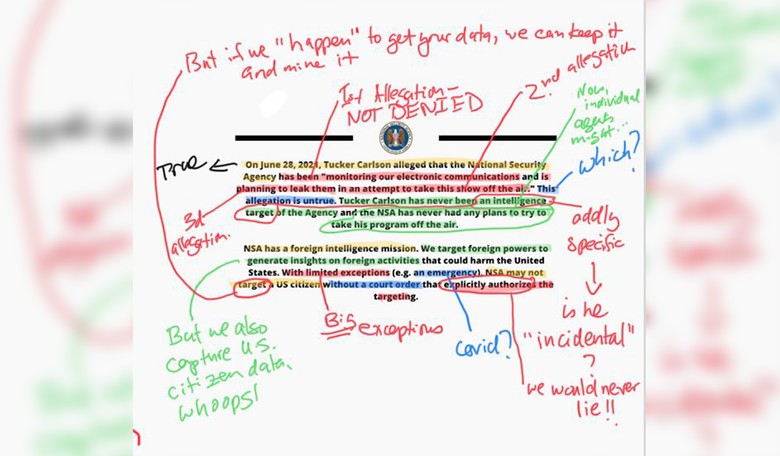 But if we "happen" to get your data, we can keep it
and mine it
1st Allegation -
NOT DENIED
2nd allegation
Now,
individual
agents
might...
True
which?
On June 28, 2021, Tucker Carlson alleged that the National Security
Agency has been "monitoring our electronic communications and is
planning to leak them in an attempt to take this show off the air." This
allegation is untrue. Tucker Carlson has never been an intelligence
target of the Agency and the NSA has never had any plans to try to
take his program off the air.
3rd
allegation.
oddly
specific
NSA has a foreign intelligence mission. We target foreign powers to
generate insights on foreign activities that could harm the United
States. With limited exceptions (e.g. an emergency), NSA may not
target a US citizen without a court order that explicitly authorizes the
targeting.
is he
"incidental"
?
But we also
capture U.S.
citizen data,
whoops!
Big exceptions
covid?
we would never
lie!!